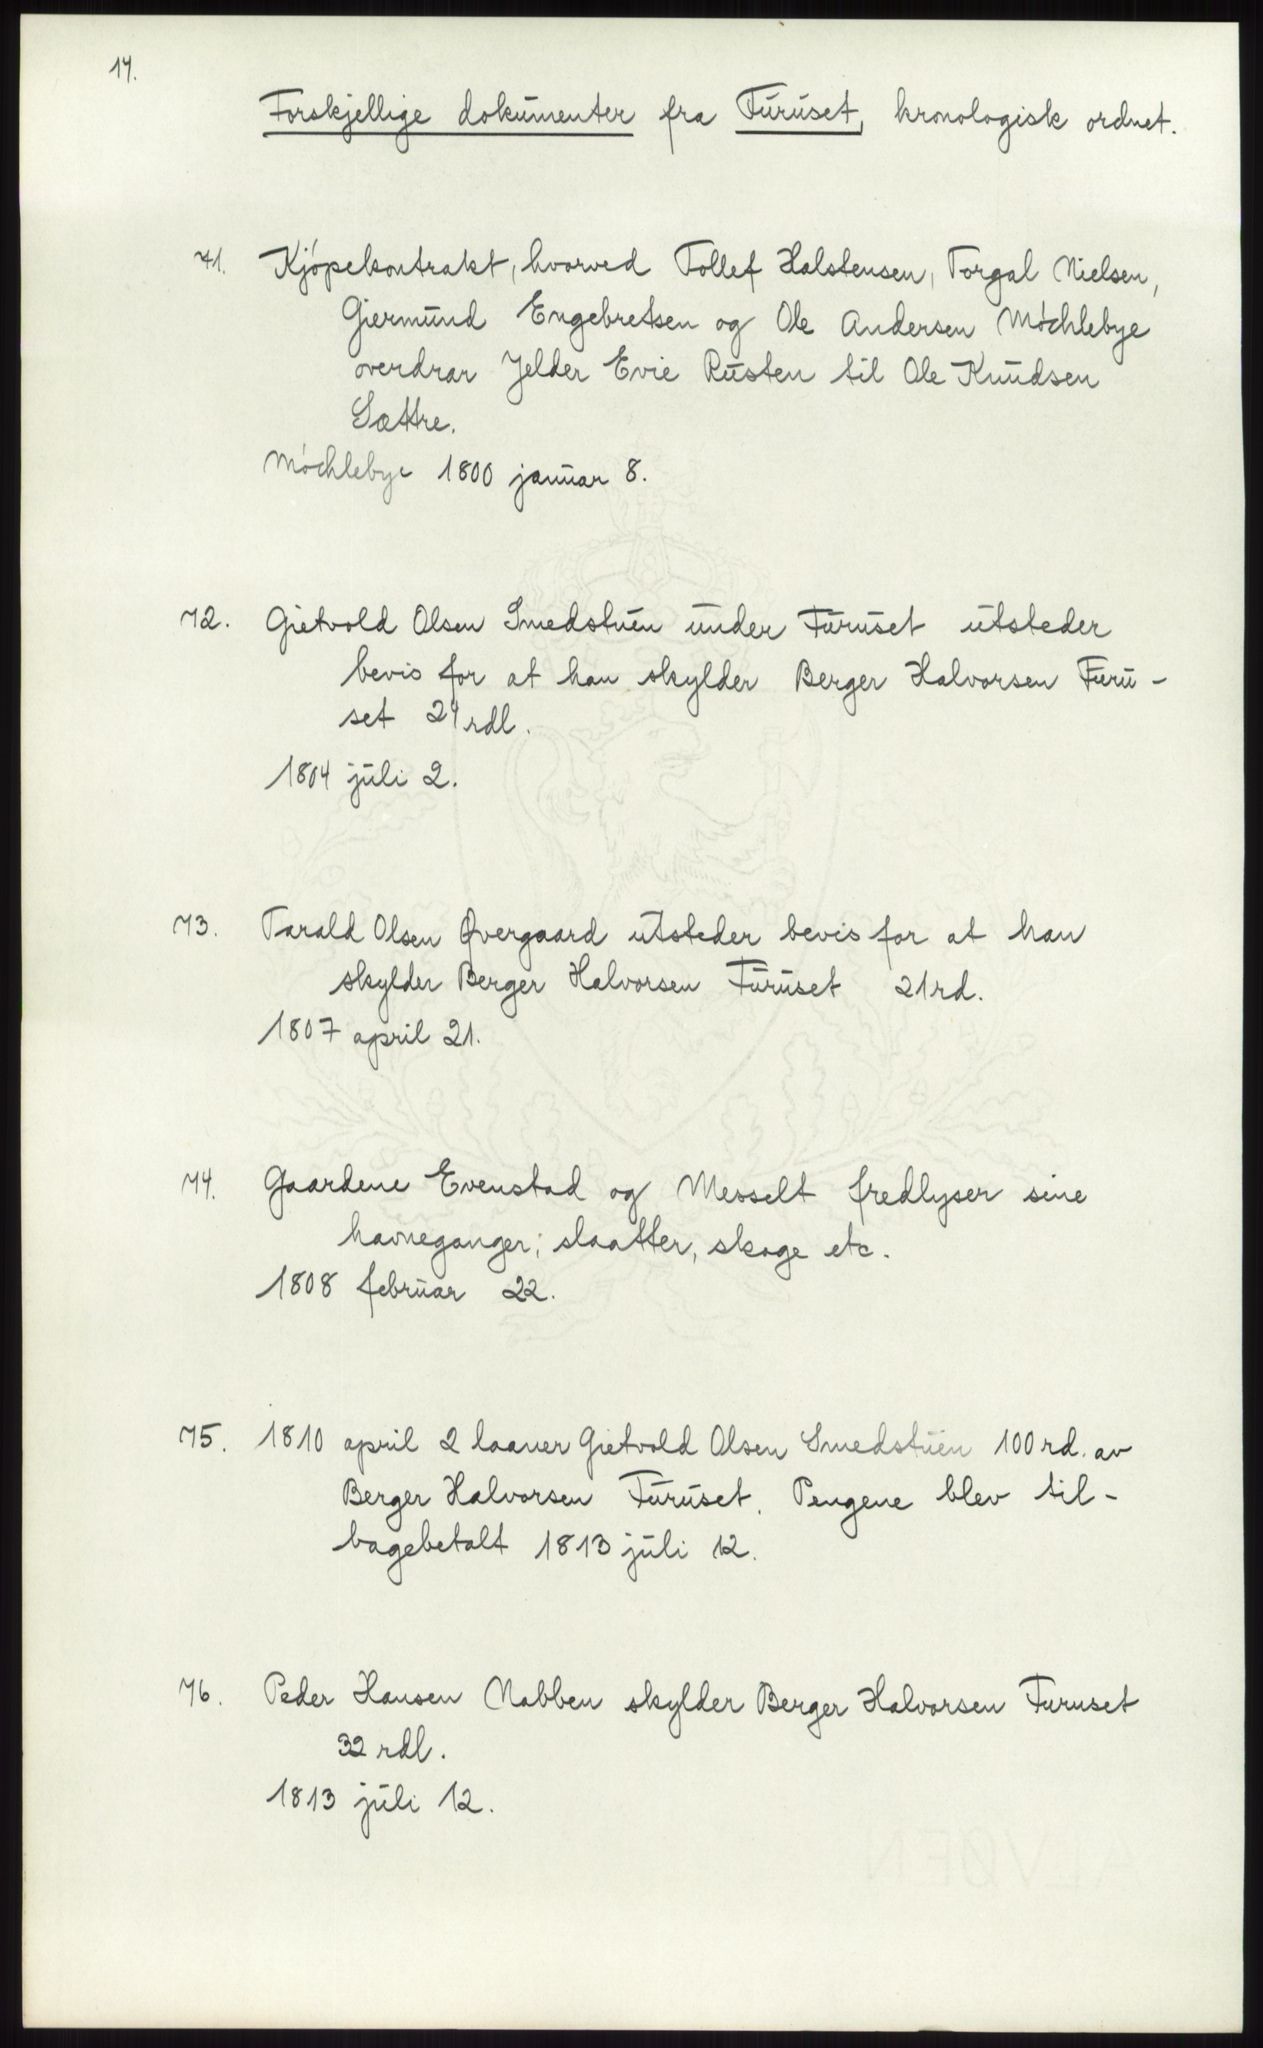 14.
Forskjellige dokumenter fra Furuset, kronologisk ordnet.
71. Kjópekontrakt, hvorved Tollef Halstensen, Torgal Nielsen,
Giermund Engebretsen og Ole Andersen Móchlebye
overdrar Jelder Evie Rusten til Ole Knudsen
Sættre.
Móchlebye 1800 januar 8.
72. Gietvold Olsen Smedstuen under Furuset utsteder
bevis for at han skylder Berger Halvorsen Furu-
set 29 rdl.
1804 juli 2.
73. Tarald Olsen Øvergaard utsteder bevis for at han
skylder Berger Halvorsen Furuset 21 rd.
1807 april 21.
74. Gaardene Evenstad og Messelt fredlyser sine
havneganger, slaatter, skoge etc.
1808 februar 22.
75. 1810 april 2 laaner Gietvold Olsen Smedstuen 100 rd. av
Berger Halvorsen Furuset. Pengene blev til-
bagebetalt 1813 juli 12.
76. Peder Hansen Nabben skylder Berger Halvorsen Furuset
32 rdl.
1813 juli 12.
ALVØEN